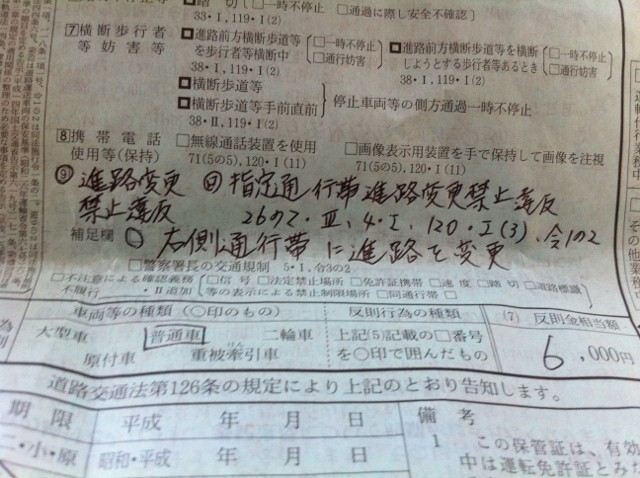 踏切 □一時不停止 □通過に際し安全不確認
33・Ⅰ,119・Ⅰ(2)
7 横断歩行者等妨害等
進路前方横断歩道等を歩行者等横断中 □一時不停止 □通行妨害
38・Ⅰ,119・Ⅰ(2)
進路前方横断歩道等を横断しようとする歩行者等あるとき □一時不停止 □通行妨害
38・Ⅰ,119・Ⅰ(2)
□横断歩道等
□横断歩道等手前直前
停止車両等の側方通過一時不停止
38・Ⅱ,119・Ⅰ(2)
8 携帯電話使用等(保持)
□無線通話装置を使用
71(5の5),120・Ⅰ(11)
□画像表示用装置を手で保持して画像を注視
71(5の5),120・Ⅰ(11)
⑨ 進路変更禁止違反
指定通行帯進路変更禁止違反
26の2・Ⅲ,4・Ⅰ,120・Ⅰ(3),令1の2
補足欄
右側通行帯に進路を変更
□警察署長の交通規制 5・Ⅰ,令3の2
□不注意による確認義務不履行 ・Ⅱ追加
□信号 □法定禁止場所 □免許証携帯 □速度 □踏切 □道路標識等の表示による禁止制限場所 □同通行帯 □
車両等の種類(○印のもの)
反則行為の種類
(7) 反則金相当額
大型車 普通車 二輪車
原付車 重被牽引車
上記(5)記載の□番号を○印で囲んだもの
6,000円
道路交通法第126条の規定により上記のとおり告知します。
期限 平成 年 月 日
備考
二・小・原 昭和・平成 年 月 日
1 この保管証は、有効
中は運転免許証とみな